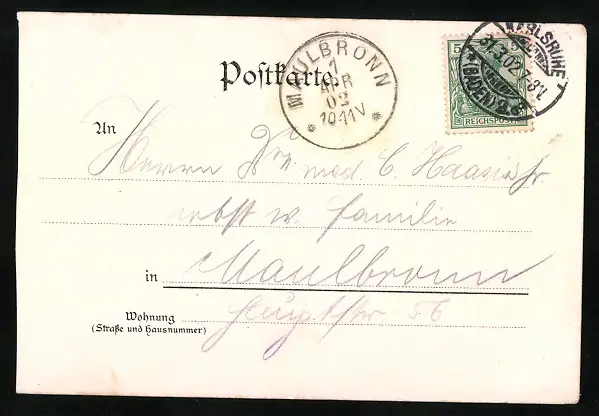 Postkarte
MAULBRONN
1
APR
02
10-11V
KARLSRUHE 1
31.3.02.7-8V.
(BADEN)
5
REICHSPOST
An
Herrn Dr. med. C. Haasis jr.
nebst w. Familie
in Maulbronn
Wohnung
(Straße und Hausnummer)
Hauptstr 56